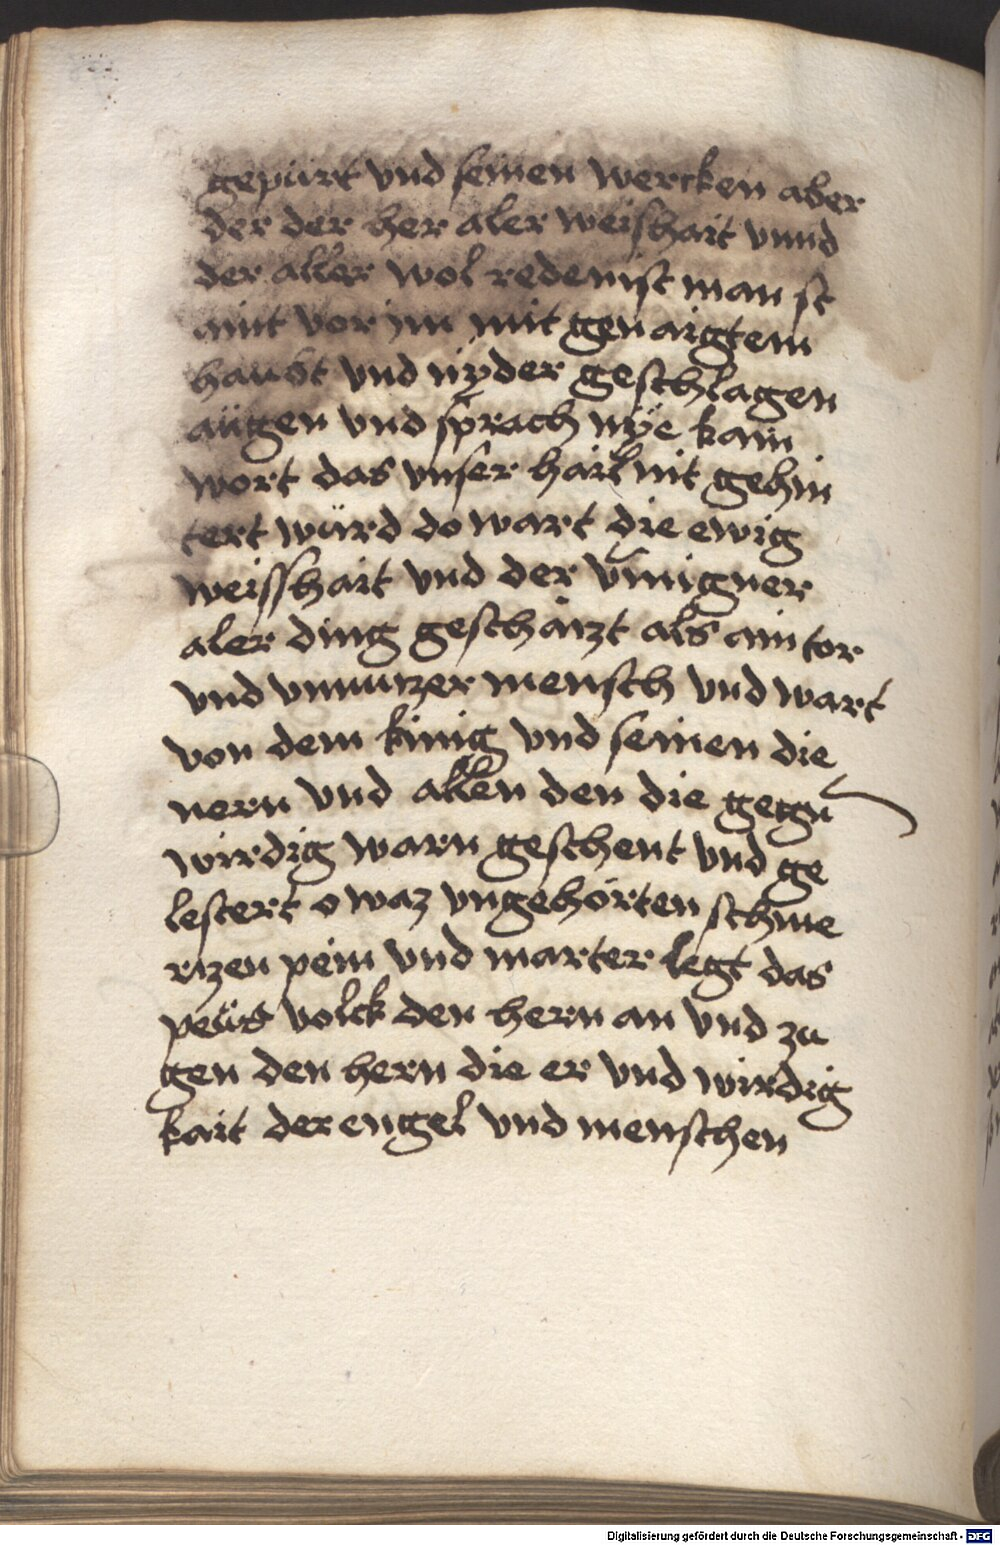 gepurt vnd seinen wercken aber
der der her aler weishait vnnd
der aller wol redenist man st
aint vor im mit genaigtem
haubt vnd nÿder geschlagen
aügen vnd sprach nÿe kain
wort das vnser hail nit gehin
tert würd do wart die ewig
weisshait vnd der
aler ding geschäzt als ain tor
vnd vnnutzer mensch vnd wart
von dem kinig vnd seinen die
nern vnd allen den die gegn
wirdig warn geschent vnd ge
lestert o waz vngehörten schme
rzen pein vnd marter legt das
pews volck den hern an vnd zu
gen den hern die er vnd wirdig
kait der engel vnd menschen
Digitalisierung gefördert durch die Deutsche Forschungsgemeinschaft - DFG